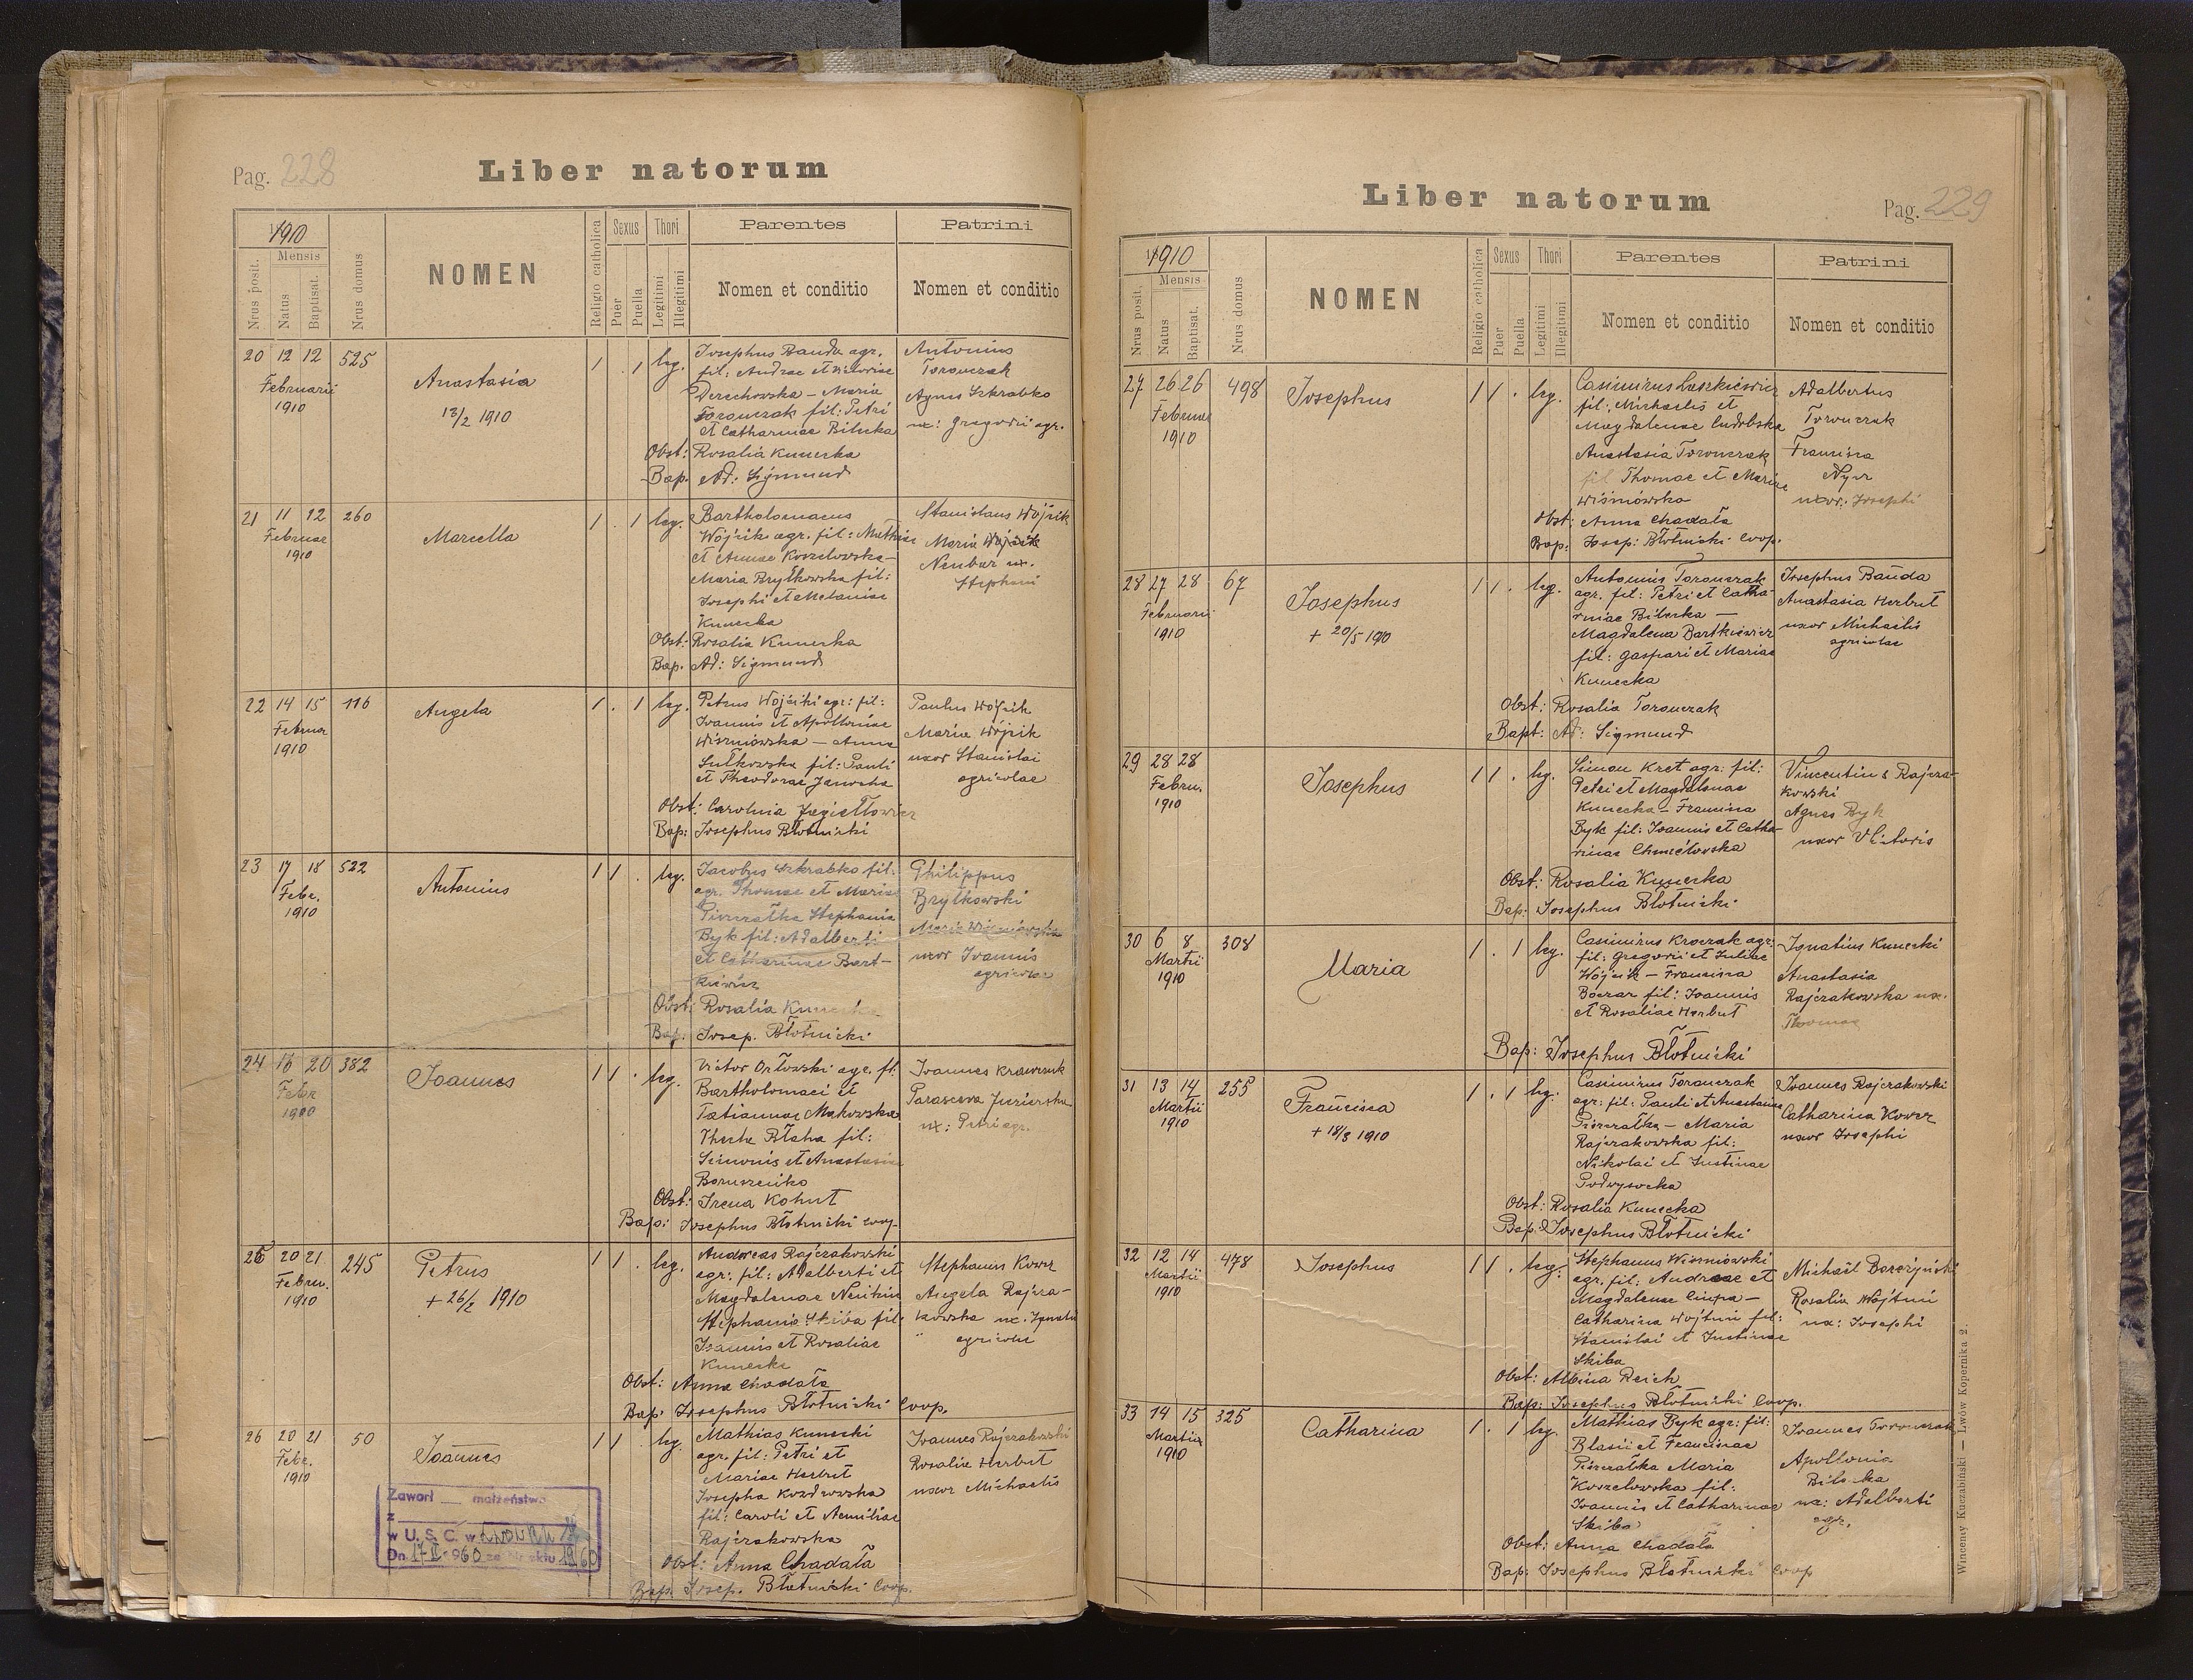 Pag. 228
Liber natorum
1910
Mensis
Nrus posit.
Natus
Baptisat.
Nrus domus
NOMEN
Religio catholica
Sexus
Puer
Puella
Thori
Legitimi
Illegitimi
Parentes
Nomen et conditio
Patrini
Nomen et conditio
20 12 12 525
Februarii
1910
Anastasia
13/2 1910
1 . 1 leg.
Josephus Bauda agr.
fil: Andreae et Victoriae
Derechowska — Maria
Toronczak fil: Petri
et Catharinae Bilecka
Obst: Rosalia Kunecka
Bap. Ad: Sigmund
Antonius
Toronczak
Agnes Szkrabko
ux: Gregorii agr.
21 11 12 260
Februar
1910
Marcella
1 . 1 leg.
Bartholomaeus
Wójcik agr. fil: Mathiae
et Annae Koszelowska —
Maria Brylkowska fil:
Josephi et Melaniae
Kunecka
Obst: Rosalia Kunecka
Bap. Ad: Sigmund
Stanislaus Wójcik
Maria Wójcik
Neubar ux.
Stephani
22 14 15 116
Februar
1910
Angela
1 . 1 leg.
Petrus Wójcicki agr: fil:
Joannis et Apolloniae
Wiszniowska — Anna
Sulkowska fil: Pauli
et Theodorae Janocha
Obst: Carolina Jagiełłowicz
Bap: Josephus Błotnicki
Paulus Wójcik
Maria Wójcik
uxor Stanislai
agricolae
23 17 18 522
Febr.
1910
Antonius
1 1 . leg.
Jacobus Szkrabko fil:
agr. Thomae et Mariae
Pieczatka Stephania
Byk fil: Adalberti
et Catharinae Bart-
kiewicz
Obst: Rosalia Kunecka
Bap: Josep. Błotnicki
Philippus
Brylkowski
Maria Wiszniowska
uxor Joannis
agricolae
24 16 20 382
Febr
1910
Joannes
1 1 . leg.
Victor Orłowski agr. fil
Bartholomaei et
Tatiannae Makowska
Thecla Błaha fil:
Simonis et Anastasiae
Boruszeńko
Obst: Irena Kohut
Bap: Josephus Błotnicki coop.
Joannes Krawczuk
Parasceva Juzierska
ux: Petri agr.
25 20 21 245
Febru.
1910
Petrus
+ 26/2 1910
1 1 . leg.
Andreas Rajczakowski
agr: fil: Adalberti et
Magdalenae
Stephania Skiba fil:
Joannis et Rosaliae
Kunecka
Obst: Anna Chadała
Bap: Josephus Błotnicki Coop.
Stephanus Kowcz
Angela Rajcza-
kowska ux. Ignatii
agricolae
26 20 21 50
Febr.
1910
Joannes
1 1 . leg.
Mathias Kunecki
agr. fil: Petri et
Mariae Herbut
Josepha Kozdrowska
fil: Caroli et Aemiliae
Rajczakowska
Obst: Anna Chadała
Bap: Josep. Błotnicki Coop.
Joannes Rajczakowski
Rosalia Herbut
uxor Michaelis
Zawarł ___ małżeństwo
z
w U. S. C. w
Dn. 17 II 1960 za Nr aktu 19/60
Liber natorum
Pag. 229
1910
Mensis
Nrus posit.
Natus
Baptisat.
Nrus domus
NOMEN
Religio catholica
Sexus
Puer
Puella
Thori
Legitimi
Illegitimi
Parentes
Nomen et conditio
Patrini
Nomen et conditio
27 26 26 498
Februar
1910
Josephus
1 1 . leg.
Casimirus Laszkiewicz
fil: Michaelis et
Magdalenae
Anastasia Toronczak
fil Thomae et Mariae
Wiśniowska
Obst: Anna Chadała
Bap: Josep: Błotnicki Coop.
Adalbertus
Toronczak
Francisca
uxor: Josephi
28 27 28 67
Februarii
1910
Josephus
+ 20/5 1910
1 1 . leg.
Antonius Toronczak
agr. fil: Petri et Catha-
rinae Bilecka —
Magdalena Bartkiewicz
fil: Gaspari et Mariae
Kunecka
Obst: Rosalia Toronczak
Bapt: Ad: Sigmund
Josephus Bauda
Anastasia Herbut
uxor Michaelis
agricolae
29 28 28
Febru.
1910
Josephus
1 1 . leg.
Simon Kret agr: fil:
Petri et Magdalenae
Kunecka — Francisca
Byk fil: Joannis et Catha-
rinae Chmielowska
Obst: Rosalia Kunecka
Bap: Josephus Błotnicki
Vincentius Rajcza-
kowski
Agnes Byk
uxor Victoris
30 6 8 308
Martii
1910
Maria
1 . 1 leg.
Casimirus Kroczak agr:
fil: Gregorii et Juliae
Wójcik — Francisca
Boczar fil: Joannis
et Rosaliae Herbut
Bap: Josephus Błotnicki
Ignatius Kunecki
Anastasia
Rajczakowska ux.
Thomae
31 13 14 255
Martii
1910
Francisca
+ 18/3 1910
1 . 1 leg:
Casimirus Toronczak
agr: fil: Pauli et Anastasiae
Pieczatka — Maria
Rajczakowska fil:
Nikolai et Justinae
Podwysocka
Obst: Rosalia Kunecka
Bap: Josephus Błotnicki
Joannes Rajczakowski
Catharina Kowcz
uxor Josephi
32 12 14 478
Martii
1910
Josephus
1 1 . leg:
Stephanus Wiśniowski
agr. fil: Andreae et
Magdalenae Ciupa —
Catharina Wojtuń fil:
Stanislai et Justinae
Skiba
Obst: Albina Reich
Bap: Josephus Błotnicki Coop.
Michaël
Rosalia Wojtuń
ux: Josephi
33 14 15 325
Martii
1910
Catharina
1 . 1 leg.
Mathias Byk agr: fil:
Blasii et Franciscae
Pieczatka Maria
Koszelowska fil:
Joannis et Catharinae
Skiba
Obst: Anna Chadała
Bap: Josephus Błotnicki Coop
Joannes Toronczak
Apollonia
Bilecka
ux: Adalberti
agr.
Wincenty Kuczabiński — Lwów Kopernika 2.